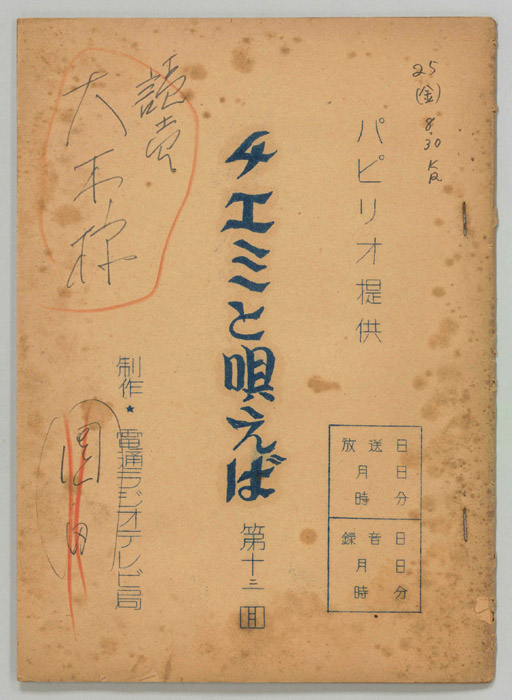 25
(金)
8.30
パピリオ提供
放送日
月日
時分
録音日
月日
時分
チエミと唄えば
第十三回
読売
大木様
制作★電通ラジオテレビ局